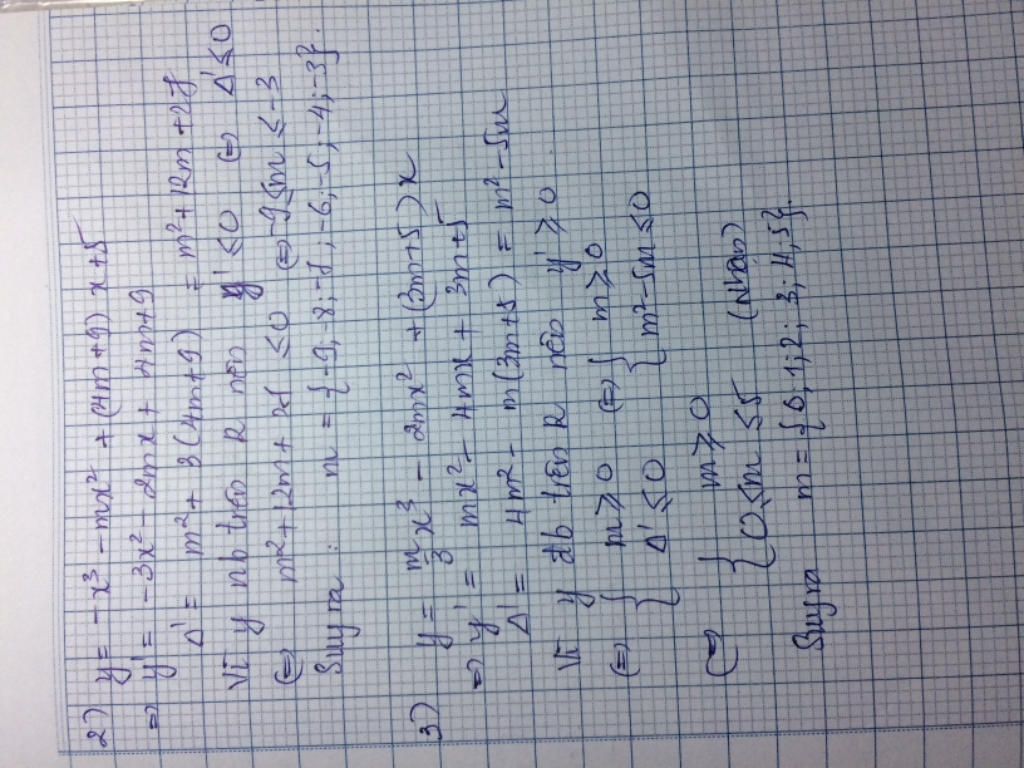 2) y = -x³ - mx² + (4m+9)x+5
⇒ y' = -3x² - 2mx + 4m+9
Δ' = m² + 3(4m+9) = m² + 12m + 27
Vì y nb trên R nên y' ≤ 0 ⇔ Δ' ≤ 0
⇔ m² + 12m + 27 ≤ 0 ⇔ -9 ≤ m ≤ -3
Suy ra : m = {-9;-8;-7;-6;-5;-4;-3}.
3) y = m/3 x³ - 2mx² + (3m+5)x
⇒ y' = mx² - 4mx + 3m+5
Δ' = 4m² - m(3m+5) = m² - 5m
Vì y đb trên R nên y' ≥ 0
⇔ { m ≥ 0 ⇔ { m ≥ 0
Δ' ≤ 0 m² - 5m ≤ 0
⇔ { m ≥ 0
0 ≤ m ≤ 5 (Nhận)
Suy ra m = {0; 1; 2; 3; 4; 5}.